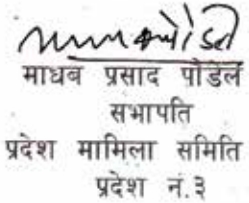 माधब प्रसाद पौडेल
सभापति
प्रदेश मामिला समिति
प्रदेश नं.३